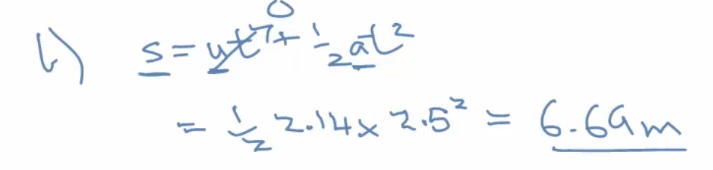 b) s = ut⁰ + ½at²
= ½ 2.14 × 2.5² = 6.69m